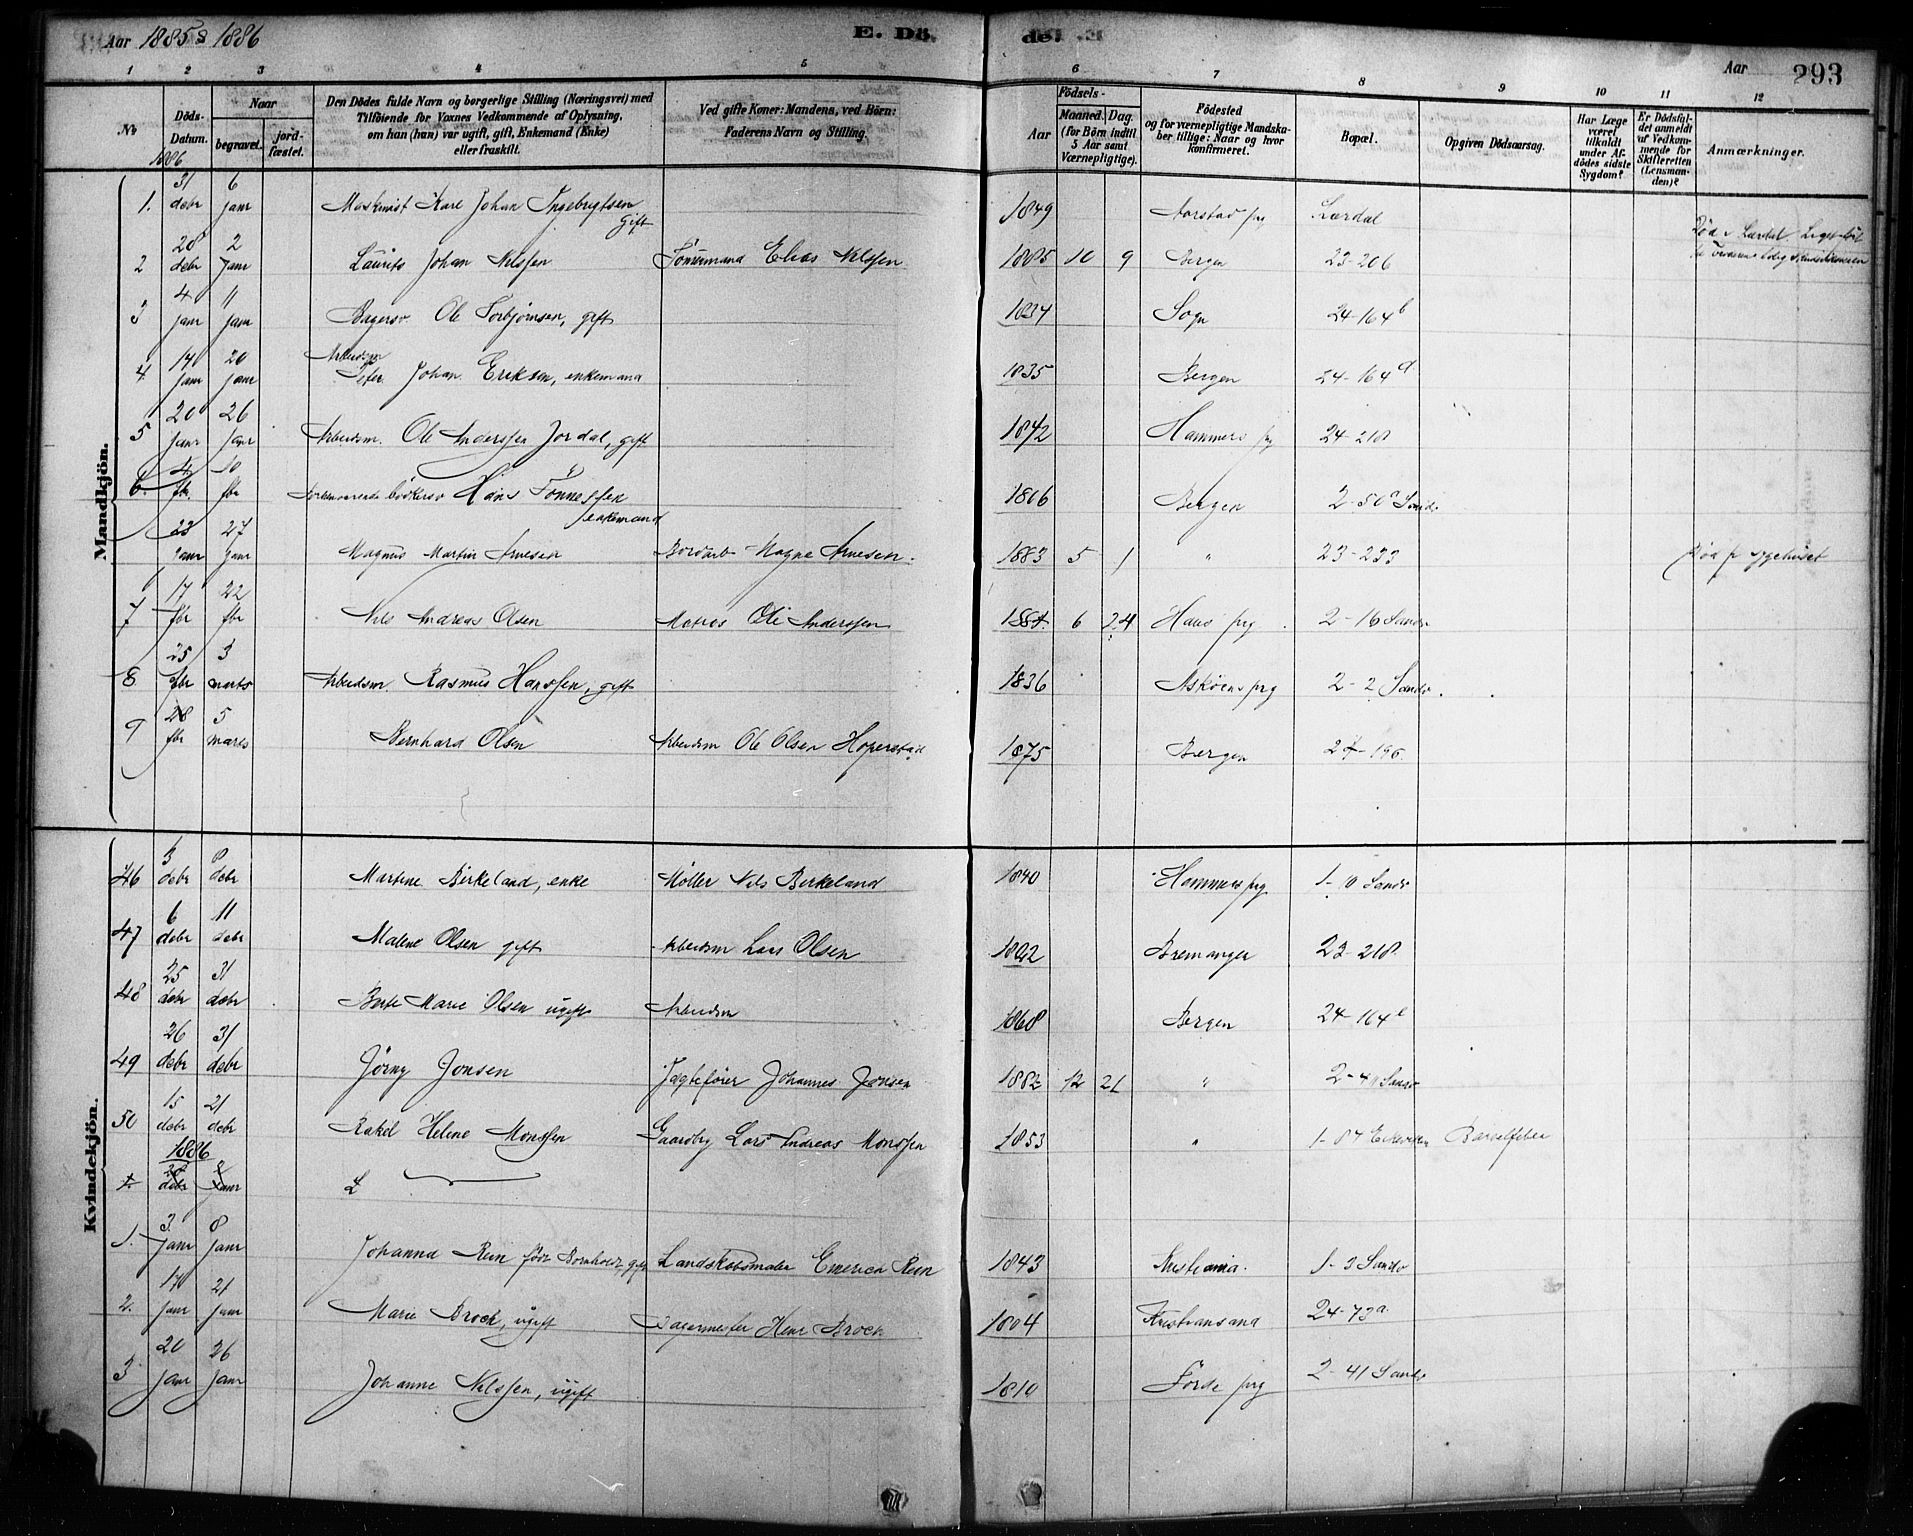 Aar 1885 & 1886 E. Dö- de. Aar 293
1 2 3 4 5 6 7 8 9 10 11 12
No Döds-Datum. Naar begravet. jordfæstet. Den Dödes fulde Navn og borgerlige Stilling (Næringsvei) med Tilföiende for Voxnes Vedkommende af Oplysning, om han (hun) var ugift, gift, Enkemand (Enke) eller fraskilt. Ved gifte Koner: Mandens, ved Börn: Faderens Navn og Stilling. Födsels- Aar Maaned. Dag. (for Börn indtil 5 Aar samt Værnepligtige). Födested og for værnepligtige Mandskaber tillige: Naar og hvor konfirmeret. Bopæl. Opgiven Dödsaarsag. Har Læge været tilkaldt under Afdödes sidste Sygdom? Er Dödsfaldet anmeldt af Vedkommende for Skifteretten (Lensmanden)? Anmærkninger.
1886
Mandkjön.
1. 31 debr 6 janr Maskinist Karl Johan Ingebrigtsen gift 1849 Aarstad pg Lærdal Död i Lærdal
2 28 debr 2 janr Laurits Johan Nilssen Tömmermand Elias Nilssen 1885 10 9 Bergen 23-206
3 4 janr 11 janr Bagersv. Ole Torbjörnsen, gift 1834 Sogn 24-164b
4 14 janr 20 janr Arbeidsm Peter Johan Eriksen, enkemand 1835 Bergen 24-164d
5 20 janr 26 janr Arbeidsm. Ole Anderssen Jordal, gift 1842 Hammers pg 24-218
6. 4 fbr. 10 fbr bödkersv Hans Tönnessen enkemand 1806 Bergen 2-50a Sandv
23 janr 27 janr Magnus Martin Arnesen Bordarb Magne Arnesen. 1883 5 1 " 23-233 Död p sygehuset
7 17 fbr 22 fbr Nils Andreas Olsen Matros Ole Anderssen 1884. 6 24 Haus prg 2-16 Sandv
8 25 fbr 3 marts Arbeidsm. Rasmus Hanssen, gift 1836 Asköens prg 2-2 Sandv.
9 28 fbr 5 marts Bernhard Olsen Arbeidsm Ole Olsen Hoperstad 1875 Bergen 24-196.
Kvindekjön.
46 3 debr 8 debr Martine Birkeland, enke Möller Nils Birkeland 1840 Hammers prg 1-10 Sandv
47 6 debr 11 debr Malene Olsen gift Arbeidsm Lars Olsen Bremanger 23-218.
48 25 debr 31 debr Berte Marie Olsen ugift Arbeidsm 1868 Bergen 24-164e
49 26 debr 31 debr Jörny Jonsen Jægtefører Johannes Jonsen 1882 12 21 " Sandv
50 15 debr 21 debr Rakel Helene Monssen Gaardbr Lars Andreas Monssen 1853 " 1-87 Barselfeber
1886
1. debr janr
1. 3. janr 8 janr Johanna Rein født Bornholdt, gift Landskabsmaler Emerich Rein 1843 Kristiania. 1-3 Sandv
2. 17 janr 21 janr Marie Brock, ugift Bagermester Henr Brock 1804 Kristiansand 24-73a.
3 20 janr 26 janr Johanne Nilssen, ugift 1810 Förde prg 2-41 Sandv